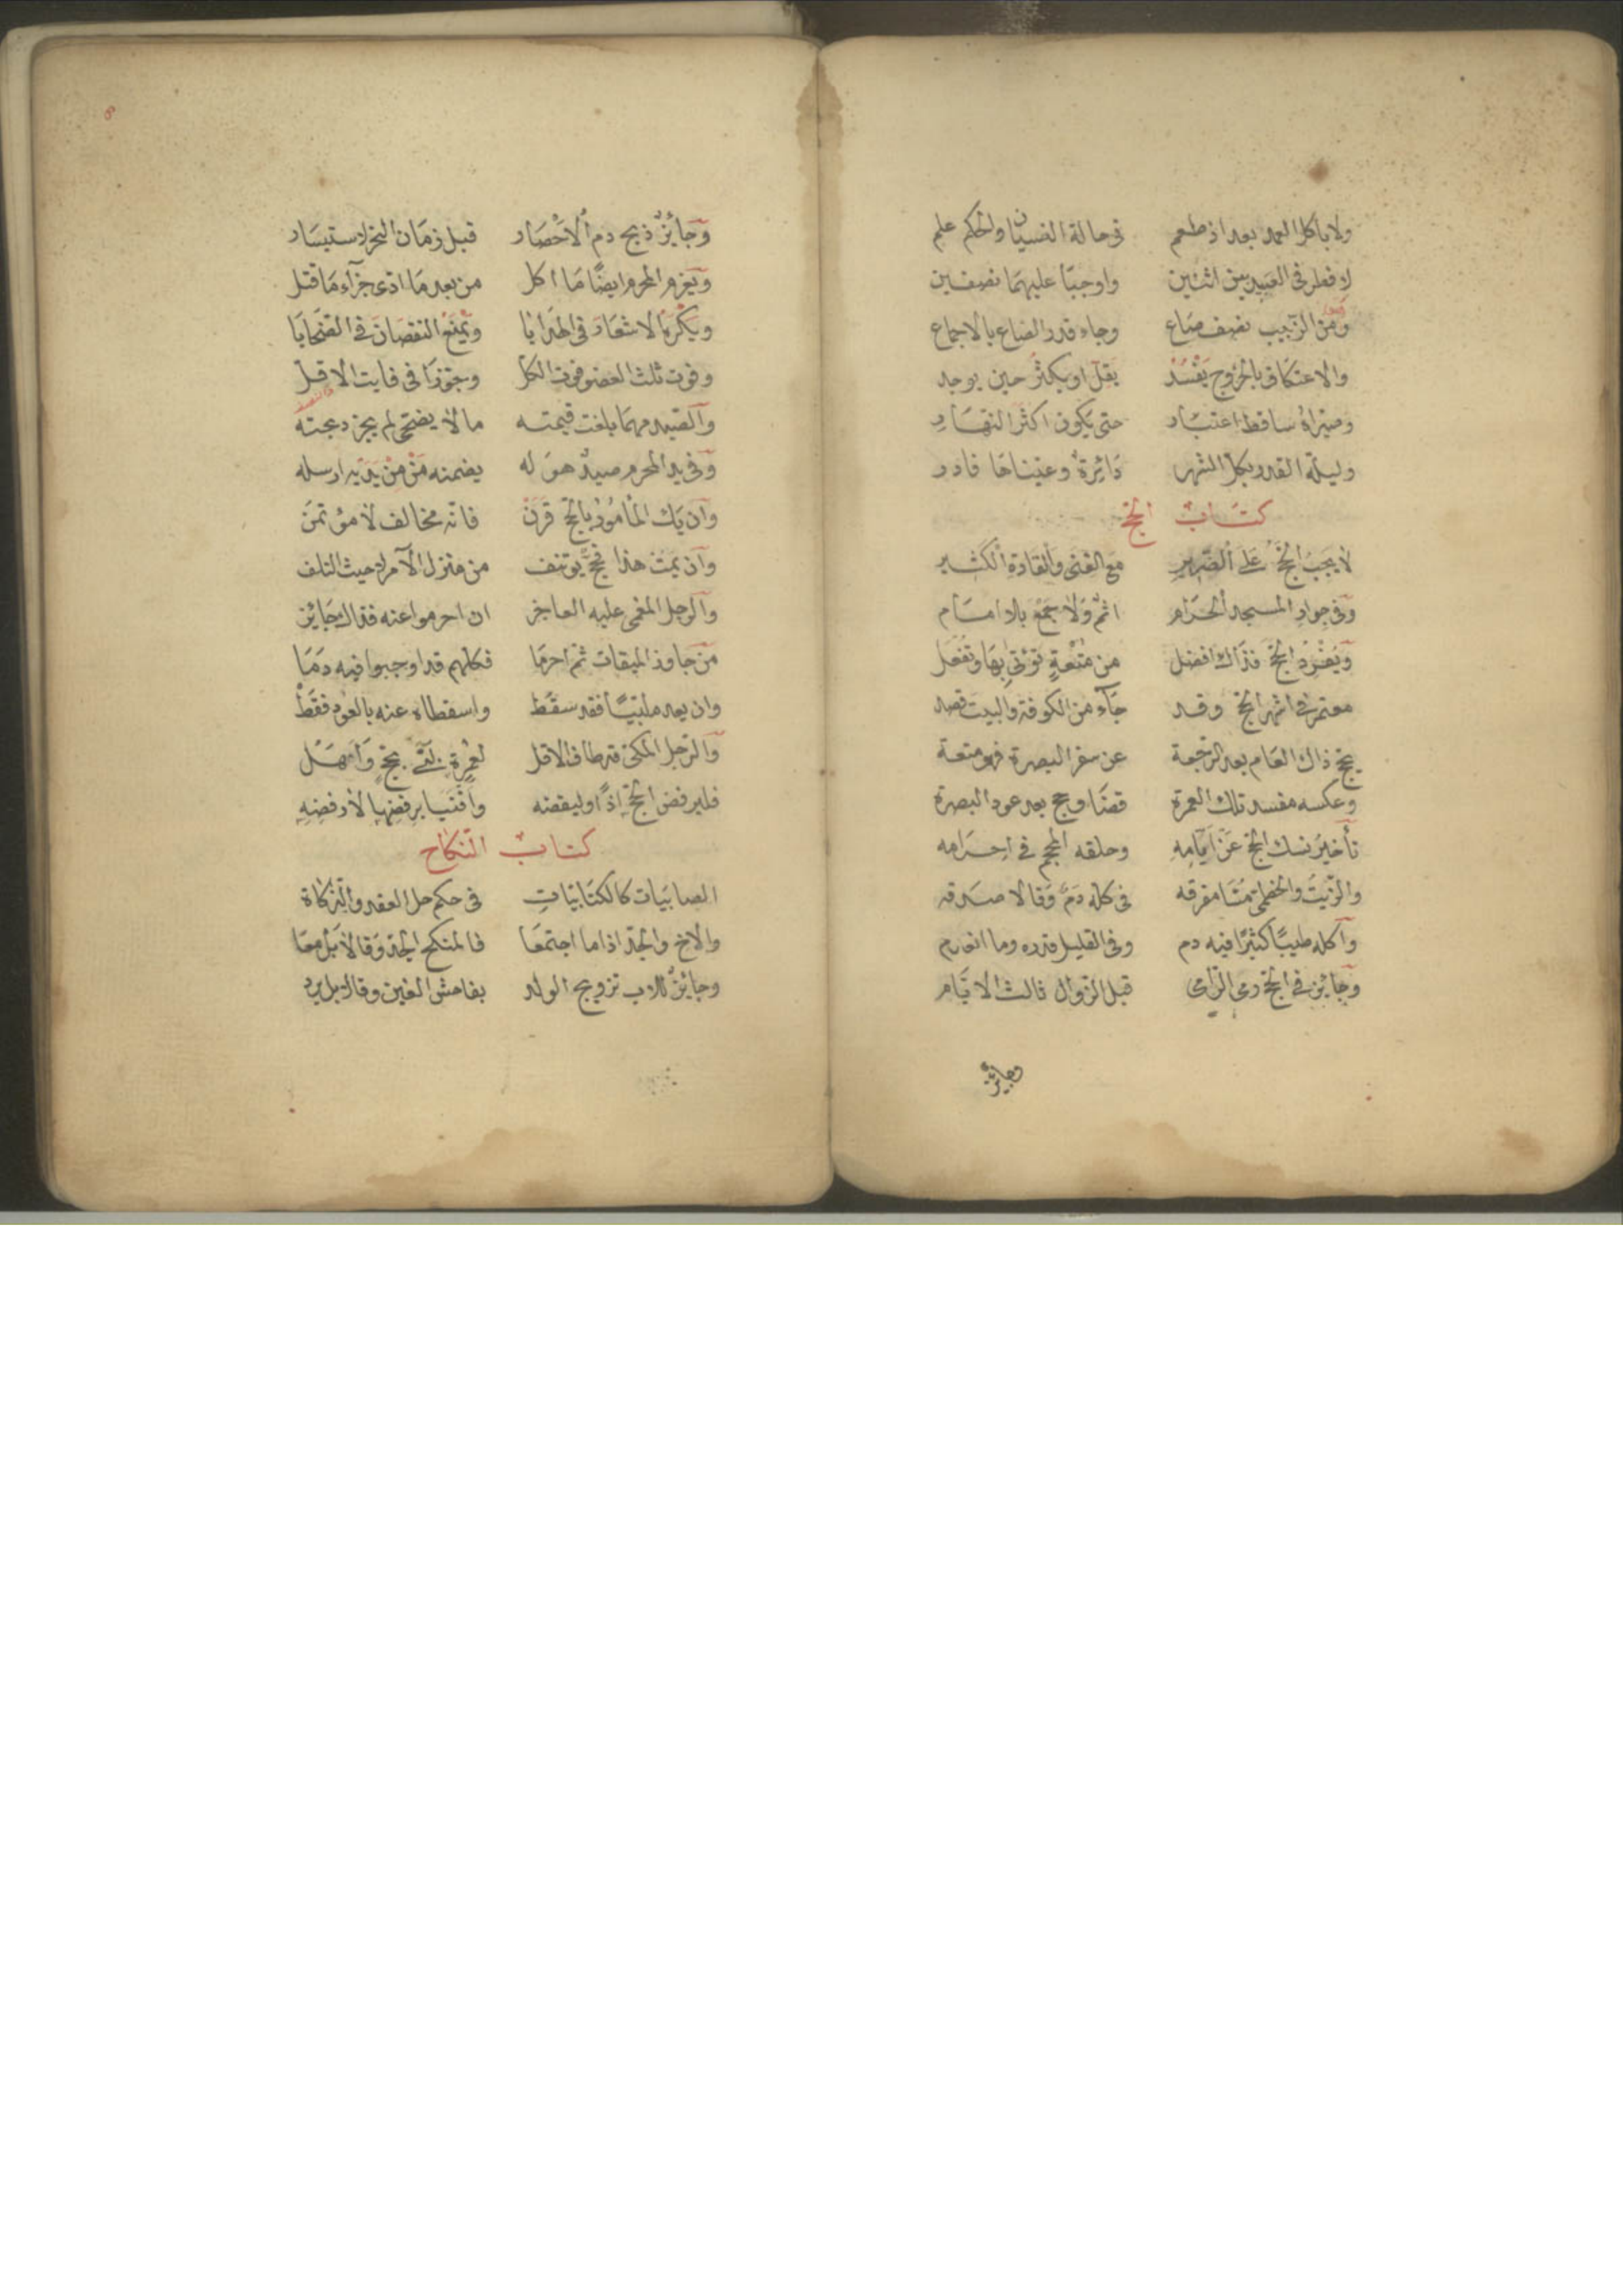 ولا بأكل العمد بعد اذ طعم في حالة النسيان والحكم علم
لا فطر في العبيد بين اثنين واوجبا عليهما نصفين
ومن الزبيب نصف صاع وجاء قدر الصاع بالاجماع
والاعتكاف بالخروج يَفْسُدُ يقلّ او يكثُر حين يوجد
وميراه ساقط اعتبار حتى يكون اكثر النهار
وليلة القدر بكل الشهر دَائِرةٌ وعيناها فادر
كتاب الحج
لا يَجِبُ الحَجُّ عَلَى الضَّرِيرِ مع الغنى والقَادَةِ الكثير
وفي جوارِ المسجد الحَرام اثمٌ ولا جمعَ بلا امام
ويُفْرَدُ الحج فذاك افضل من مُتْعَةٍ تؤتى بها وتفعل
معتمر في اشهر الحج وقد جاء من الكوفة والبيت قصد
يحج ذاك العام بعد الرجعة عن سفر البصرة فهو متعة
وعكسه مفسد تلك العمرة قضا وحج بعد عود البصرة
تأخير نسك الحج عن ايّامِهِ وحلقه المحجم في احرامه
والزيت والخطمى مفرقه في كله دم وقالا صدقه
واكله طيبًا كثيرًا فيه دم وفي القليل قدره وما انعدم
وجائز في الحج رمى الرامى قبل الزوال ثالث الايّام
وجائز
وجائزٌ ذبح دم الاحصار قبل زمان النحر لاستيسار
ويغرم المحرم ايضًا ما اكل من بعد ما ادى جزآء ما قتل
ويكره الاشعار في الهدايا ويمنع النقصان في الضحايا
وفوت ثلث العضو فوت الكل وجوّزا في فايت الاقلّ
والصيد مهما بلغت قيمته ما لا يضحى لم يجز
وفي يد المحرم صيدٌ هو له يضمنه مَنْ مِنْ يَدَيْه ارسله
وان يَك المأمُورُ بالحج قَرَنْ فانّه مخالف لا مؤتمن
وان يَمُتْ هذا فحجٌّ يوتنف من منزل الآمر لا حيث التلف
والرجل المغمى عليه العاجز ان احرموا عنه فذاك جائز
من جاوز الميقات ثم احرما فكلهم قد اوجبوا فيه دَمَا
وان يعد ملبّيًا فقد سقط واسقطاه عنه بالعود فقط
والرجل المكى قد طاف الاقل لعمرةٍ لبّى بحج وَاَهَلّ
فليرفض الحج اذًا وليقضه وافتيا برفضها لا رفضِهِ
كتاب النكاح
الصابيَات كالكتابيّاتِ في حكم حل العقد والذكاة
والاخ والجد اذا ما اجتمعا فالمنكح الجد وقالا بل معا
وجائزٌ للاب تزويج الولد بفاحش الغبن وقالا بل يرد